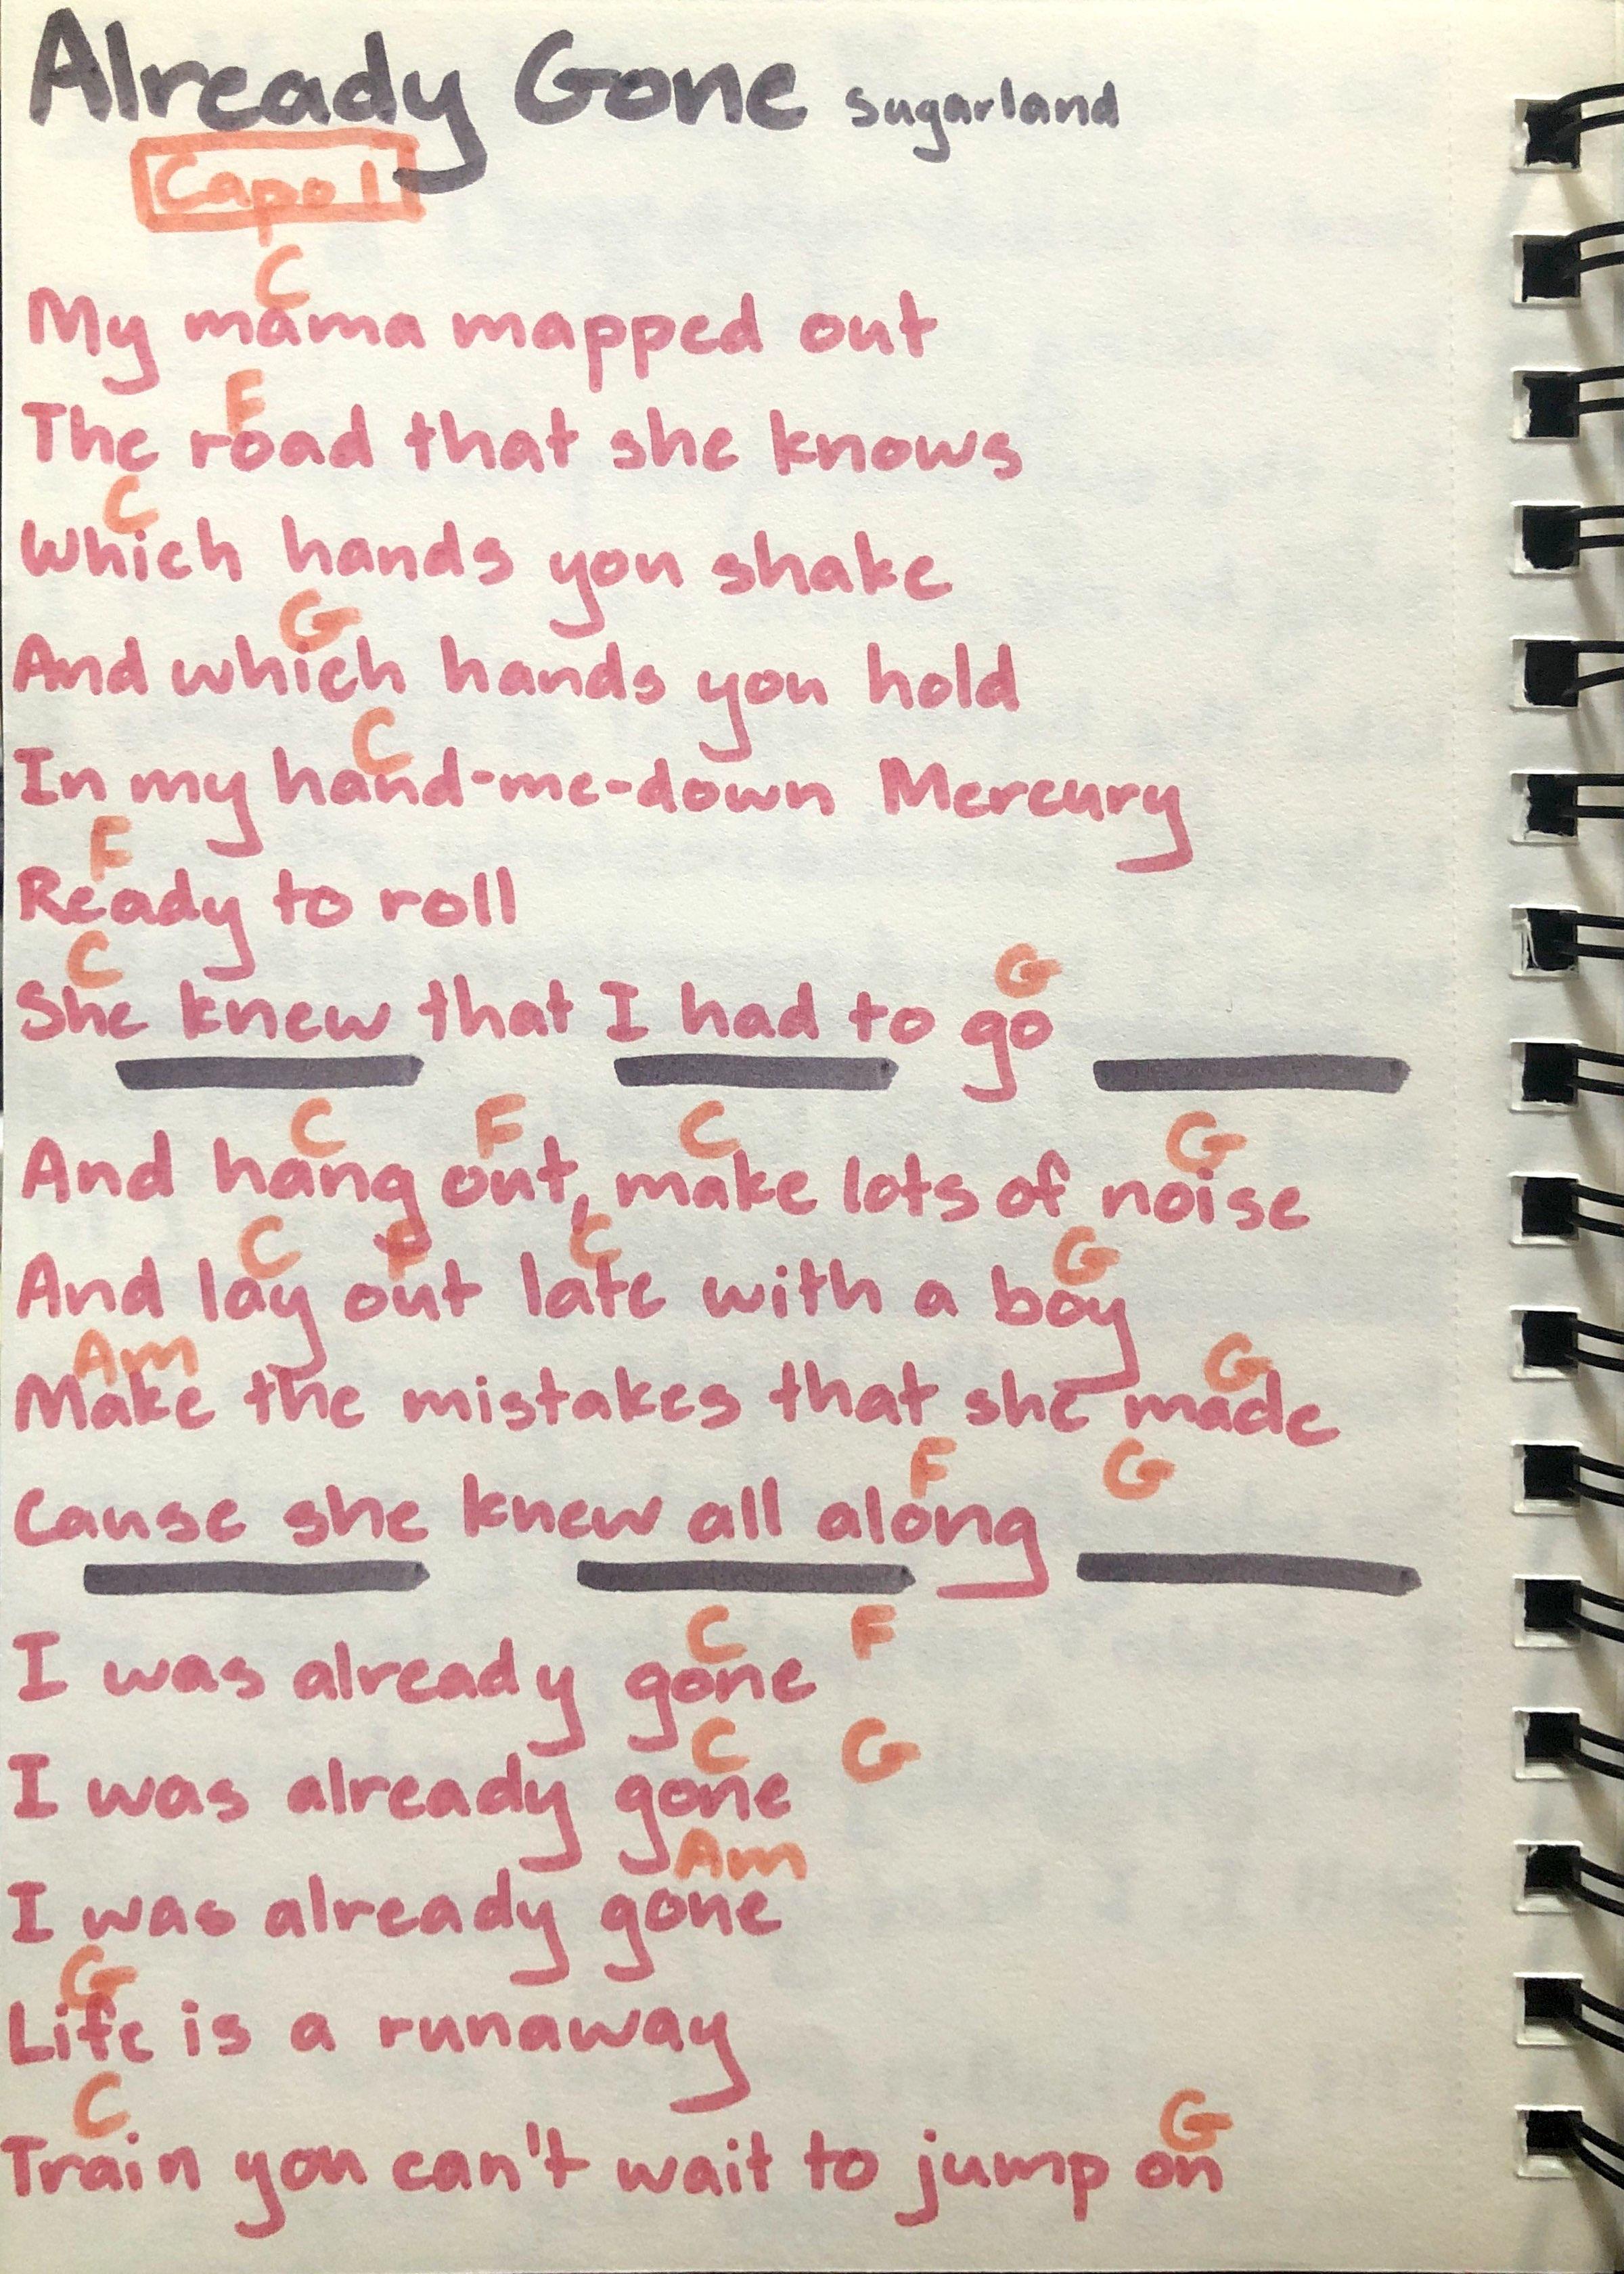 Already Gone Sugarland
Capo 1
C
My mama mapped out
F
The road that she knows
C
Which hands you shake
G
And which hands you hold
C
In my hand-me-down Mercury
F
Ready to roll
C G
She knew that I had to go
C F C G
And hang out, make lots of noise
C F C G
And lay out late with a boy
Am G
Make the mistakes that she made
F G
Cause she knew all along
C F
I was already gone
C G
I was already gone
Am
I was already gone
G
Life is a runaway
C G
Train you can't wait to jump on